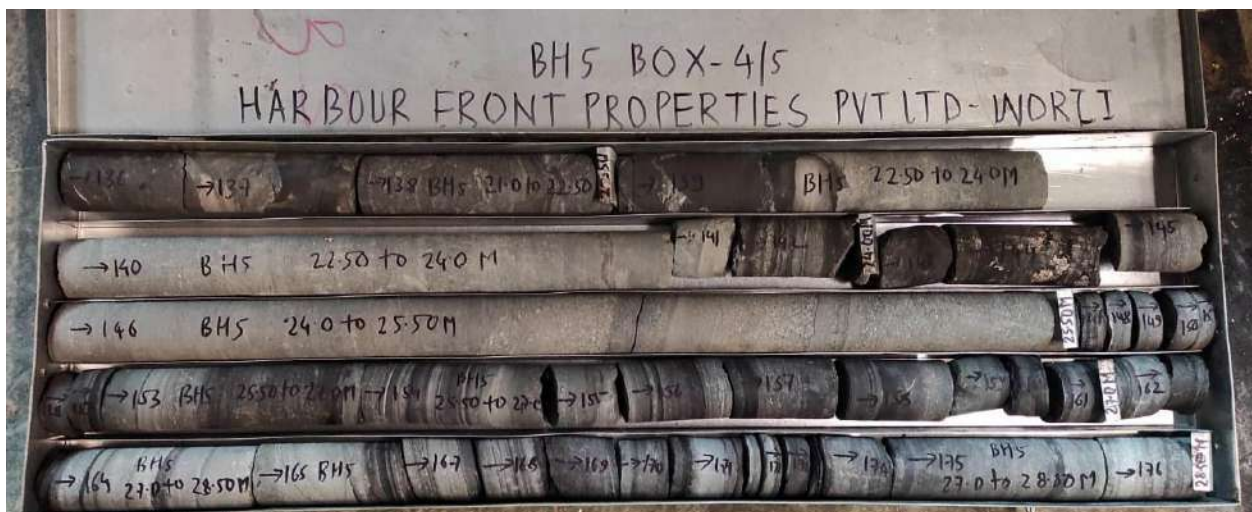 BH5 BOX-4/5
HARBOUR FRONT PROPERTIES PVT LTD-WORLI
→136 →137 →138 BH5 21.0 to 22.50 →139 BH5 22.50 to 24.0M
→140 BH5 22.50 to 24.0 M →141 24.00M →145
→146 BH5 24.0 to 25.50M 25.50M 148 149 150
→153 BH5 25.50 to 27.0M →154 BH5 25.50 to 27.0 →155 →156 →157 →158 161 27.0M 162
→164 BH5 27.0 to 28.50M →165 BH5 →167 →168 →169 →170 →171 →174 →175 BH5 27.0 to 28.50M →176 28.50M